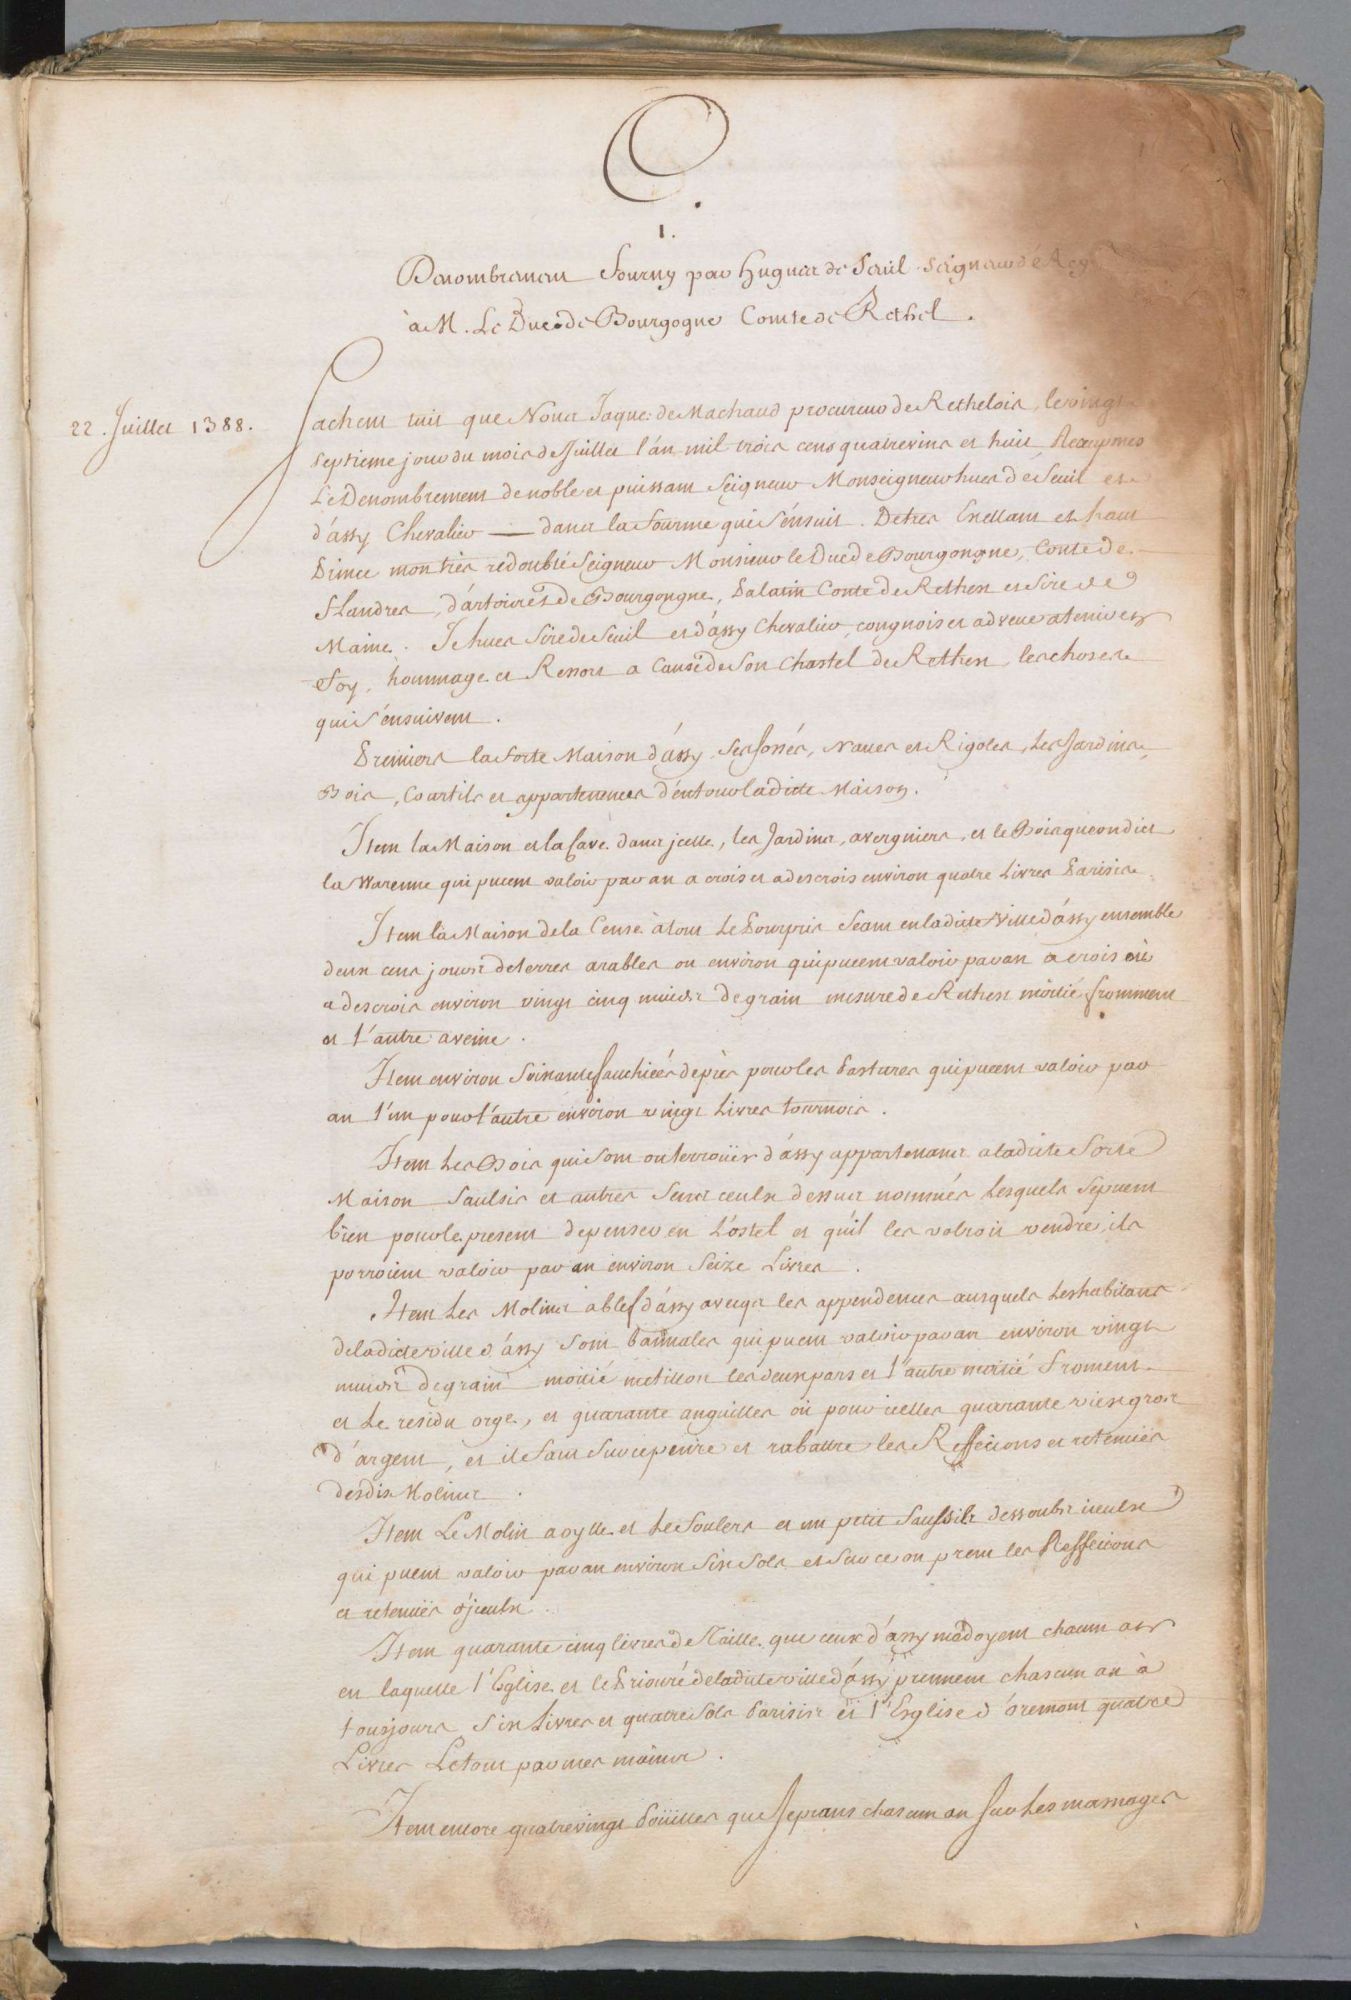 1.
Denombrement Fourny par Huguer de Seüil Seigneur d'
à M. Le Duc de Bourgogne Comte de Rethel.
22. Juillet 1388.
Sachent tuit que Nous Jaque de Machaud procureur de Rethelois, le vingt
septieme jour du mois de Juillet l'an mil trois cens quatrevins et huit, Receusmes
Le Denombrement de noble et puissant Seigneur Monseigneur hues de Seuil et
d'assy Chevalier — dans la Fourme qui s'ensuit. De tres Exellant et haut
Prince mon très redoublé Seigneur Monsieur le Duc de Bourgongne, Conte de
Flandres, d'artois et de Bourgongne, Palatin Conte de Rethest et Sire de
Maine. Je hues Sire de Seuil et d'assy Chevalier, congnois et adveue a tenir en
Foy, hommage et Ressort a Cause de Son Chastel de Rethest les choses
qui s'ensuivent.
Premiers la Forte Maison d'assy Ses fossés, Naues et Rigoles, les Jardins,
Bois, Courtils et appartenences d'entour ladicte Maison.
Item la Maison et la Cave dans jcelle, les Jardins, avergniers, et le Bois que on dict
la Warenne qui pueent valoir par an a crois et a descrois environ quatre Livres Parisis
Item la Maison de la Cense à tout Le Pourpris Seant en ladicte Ville d'assy ensemble
deux cens jours de terres arables ou environ qui pueent valoir par an a crois et
a descrois environ vingt cinq muids de grain mesure de Rethest moitié fromment
et l'autre aveine.
Item environ Soixante fauchiées de près pour les Pastures qui pueent valoir par
an l'un pour l'autre environ vingt Livres tournois.
Item Les Bois qui Sont ou terroüer d'assy appartenans a ladicte Forte
Maison Saulsis et autres Sens ceulx dessus nommés Lesquels Sepuent
bien pour le present depenser en L'ostel et qu'il les volroit vendre, ils
porroient valoir par an environ Seize Livres.
Item Les Molins a blef d'assy avecqs les appendences ausquels Les habitans
de ladicte ville d'assy Sont bannales qui puent valoir par an environ vingt
muids de grain moitié metillon les deux pars et l'autre moitié Froment
et Le residu orge, et quarante anguilles ou pour icelles quarante viex gros
d'argent, et il Faut Sur ce penre et rabattre les Reffections et retenuës
desdis Molins.
Item Le Molin a oylle et Le Foulers et un petit Saussis dessoubs iceulx
qui puent valoir par an environ Six Sols et Sur ce on prent les Reffeicions
et retenuës d'jceulx.
Item quarante cinq livres de Taille que ceux d'assy me doyent chacun an
en laquelle l'Eglise et le Prioré de ladicte ville d'assy prennent chascun an à
tousjours Six Livres et quatre Sols Parisis et l'Esglise d'oremont quatre
Livres Le tout par mes mains.
Item encore quatrevingt Poüilles que Je prans chascun an Sur Les masnages